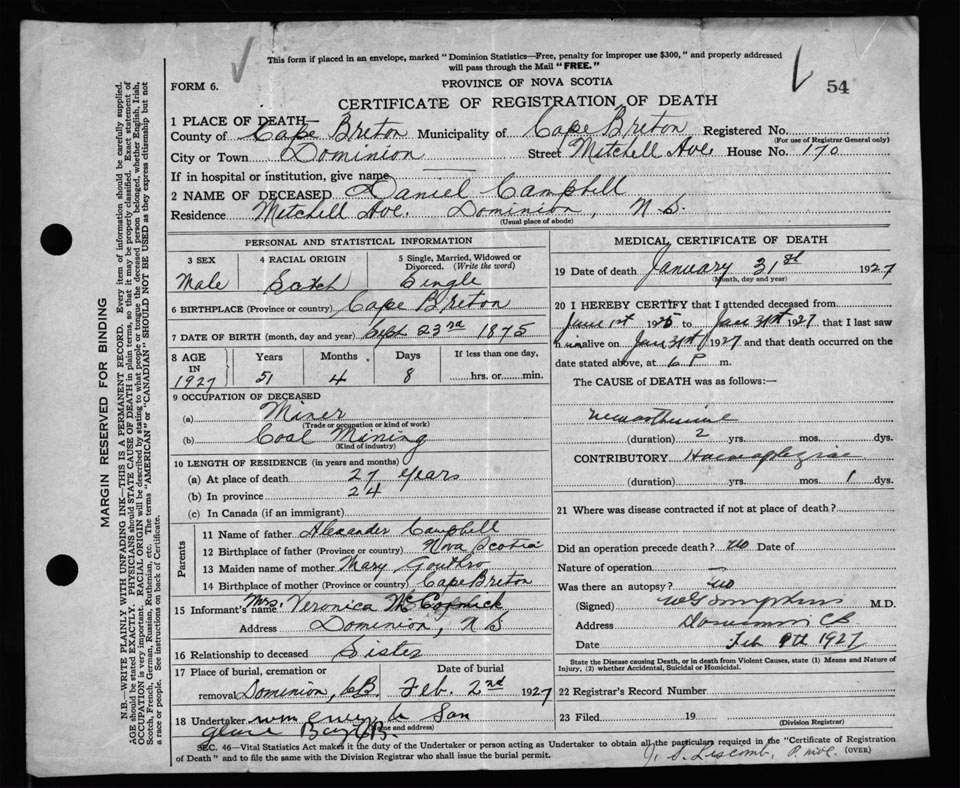 This form if placed in an envelope, marked "Dominion Statistics—Free, penalty for improper use $300," and properly addressed
will pass through the Mail "FREE."
54
FORM 6.
PROVINCE OF NOVA SCOTIA
CERTIFICATE OF REGISTRATION OF DEATH
1 PLACE OF DEATH—
County of Cape Breton Municipality of Cape Breton Registered No.
(For use of Registrar General only)
City or Town Dominion Street Mitchell Ave. House No. 170
If in hospital or institution, give name —
2 NAME OF DECEASED Daniel Campbell
Residence Mitchell Ave. Dominion, N.S.
(Usual place of abode)
PERSONAL AND STATISTICAL INFORMATION
3 SEX Male
4 RACIAL ORIGIN
5 Single, Married, Widowed or
Divorced. (Write the word)
Single
6 BIRTHPLACE (Province or country) Cape Breton
7 DATE OF BIRTH (month, day and year) Sept 23rd 1875
8 AGE IN 1927
Years 51
Months 4
Days 8
If less than one day,
hrs. or min.
9 OCCUPATION OF DECEASED
(a) Miner
(Trade or occupation or kind of work)
(b) Coal Mining
(Kind of industry)
10 LENGTH OF RESIDENCE (in years and months)
(a) At place of death 27 years
(b) In province 24
(c) In Canada (if an immigrant)
Parents
11 Name of father Alexander Campbell
12 Birthplace of father (Province or country) Nova Scotia
13 Maiden name of mother Mary Gouthro
14 Birthplace of mother (Province or country) Cape Breton
15 Informant's name Mrs. Veronica McCormick
Address Dominion, N S
16 Relationship to deceased Sister
17 Place of burial, cremation or
Date of burial
removal Dominion, C.B. Feb. 2nd 1927
18 Undertaker Wm & Son
(Name and address)
Glace Bay C.B.
MEDICAL CERTIFICATE OF DEATH
19 Date of death January 31st 1927
(Month, day and year)
20 I HEREBY CERTIFY that I attended deceased from
June 1st 1925 to Jan 31st 1927 that I last saw
him alive on Jan 31st 1927 and that death occurred on the
date stated above, at 6 P m.
The CAUSE of DEATH was as follows:—
(duration) 2 yrs. mos. dys.
CONTRIBUTORY
(duration) yrs. mos. 1 dys.
21 Where was disease contracted if not at place of death?
Did an operation precede death? no Date of
Nature of operation —
Was there an autopsy? no
(Signed) M.D.
Address Dominion CB
Date Feb 9th 1927
State the Disease causing Death, or in death from Violent Causes, state (1) Means and Nature of
Injury, (2) whether Accidental, Suicidal or Homicidal.
22 Registrar's Record Number
23 Filed 19
(Division Registrar)
SEC. 46—Vital Statistics Act makes it the duty of the Undertaker or person acting as Undertaker to obtain all the particulars required in the "Certificate of Registration
of Death" and to file the same with the Division Registrar who shall issue the burial permit.
(OVER)
J. S. Liscomb,
MARGIN RESERVED FOR BINDING
N.B.—WRITE PLAINLY WITH UNFADING INK—THIS IS A PERMANENT RECORD. Every item of information should be carefully supplied.
AGE should be stated EXACTLY. PHYSICIANS should STATE CAUSE OF DEATH in plain terms, so that it may be properly classified. Exact statement of
OCCUPATION is very important. RACIAL ORIGIN will be described by stating to what people or tongue the deceased person belonged, whether English, Irish,
Scotch, French, German, Russian, Ruthenian, etc. The terms "AMERICAN" or "CANADIAN" SHOULD NOT BE USED as they express citizenship but not
a race or people. See instructions on back of Certificate.